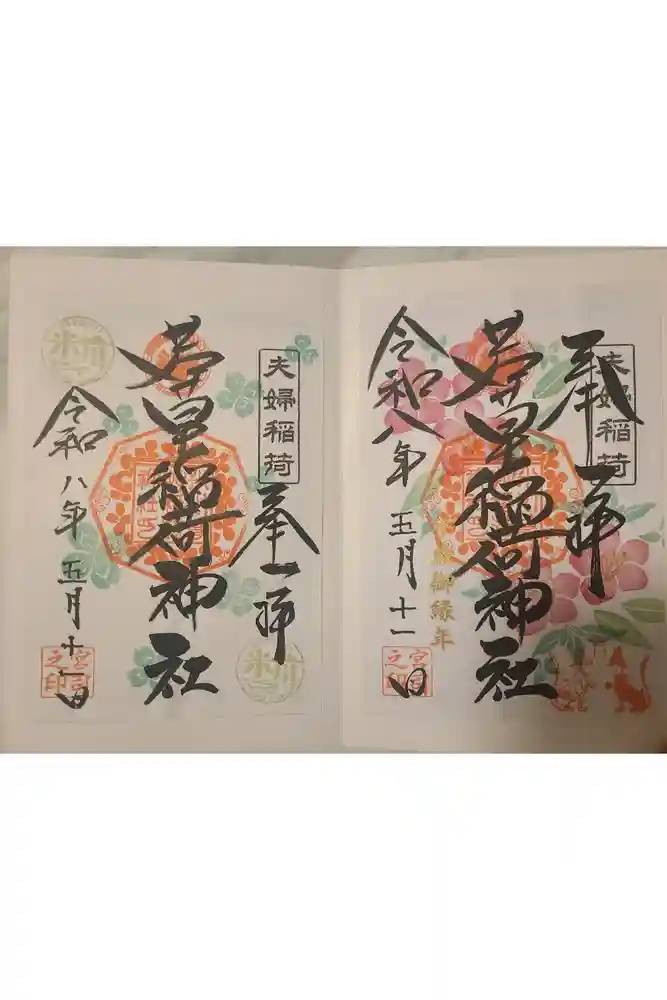 奉拝
夫婦稲荷
稲荷神社
御縁年
令和八年
五月十一日
宮司之印
夫婦稲荷
奉拝
稲荷神社
令和八年
五月十一日
宮司之印